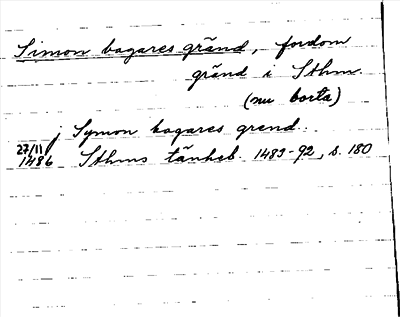 Simon bagares gränd, fordom
gränd i Sthm.
(nu borta)
j Symon bagares grend.
27/11
1486 Sthms tänkeb. 1483-92, s. 180